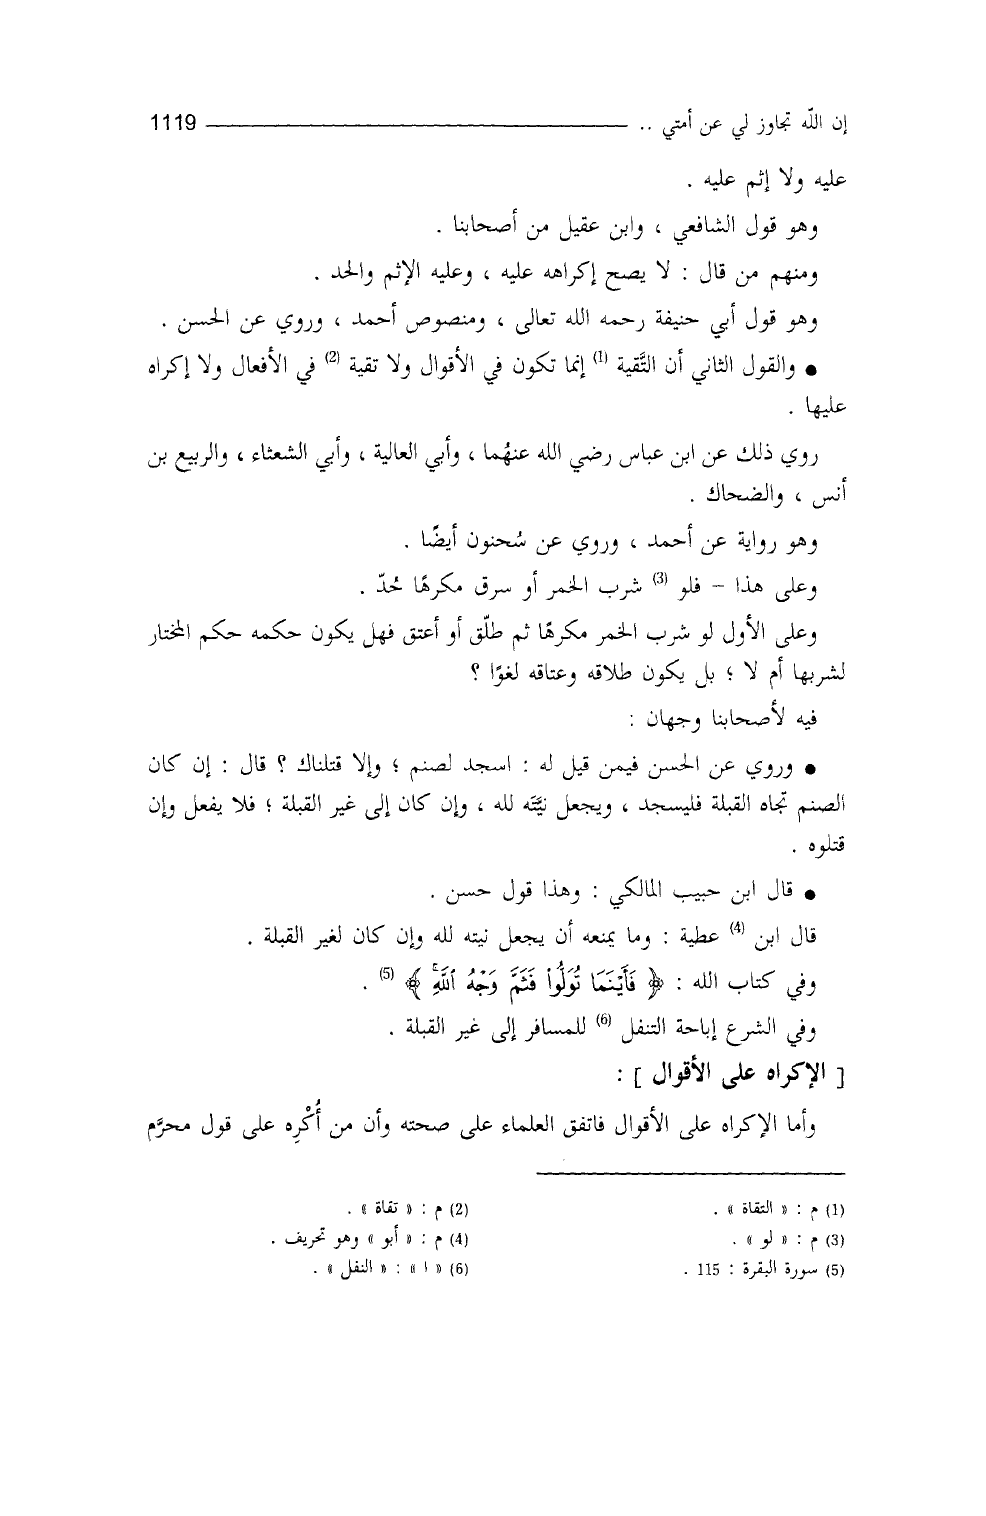 إن الله تجاوز لي عن أمتي .. 1119
عليه ولا إثم عليه .
وهو قول الشافعي ، وابن عقيل من أصحابنا .
ومنهم من قال : لا يصح إكراهه عليه ، وعليه الإثم والحد .
وهو قول أبي حنيفة رحمه الله تعالى ، ومنصوص أحمد ، وروي عن الحسن .
● والقول الثاني أن التَّقية (1) إنما تكون في الأقوال ولا تقية (2) في الأفعال ولا إكراه
عليها .
روي ذلك عن ابن عباس رضي الله عنهُما ، وأبي العالية ، وأبي الشعثاء ، والربيع بن
أنس ، والضحاك .
وهو رواية عن أحمد ، وروي عن سُحنون أيضًا .
وعلى هذا – فلو (3) شرب الخمر أو سرق مكرهًا حُدّ .
وعلى الأول لو شرب الخمر مكرهًا ثم طلّق أو أعتق فهل يكون حكمه حكم المختار
لشربها أم لا ؛ بل يكون طلاقه وعتاقه لغوًا ؟
فيه لأصحابنا وجهان :
● وروي عن الحسن فيمن قيل له : اسجد لصنم ؛ وإلا قتلناك ؟ قال : إن كان
الصنم تجاه القبلة فليسجد ، ويجعل نيَّته لله ، وإن كان إلى غير القبلة ؛ فلا يفعل وإن
قتلوه .
● قال ابن حبيب المالكي : وهذا قول حسن .
قال ابن (4) عطية : وما يمنعه أن يجعل نيته لله وإن كان لغير القبلة .
وفي كتاب الله : ﴿ فَأَيْنَمَا تُوَلُّوا۟ فَثَمَّ وَجْهُ ٱللَّهِۚ ﴾ (5) .
وفي الشرع إباحة التنفل (6) للمسافر إلى غير القبلة .
[ الإكراه على الأقوال ] :
وأما الإكراه على الأقوال فاتفق العلماء على صحته وأن من أُكْرِه على قول محرَّم
(1) م : « التقاة » . (2) م : « تقاة » .
(3) م : « لو » . (4) م : « أبو » وهو تحريف .
(5) سورة البقرة : 115 . (6) « ا » : « النفل » .